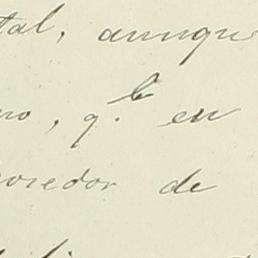 tal, aunque
no, q.e en
oredor de